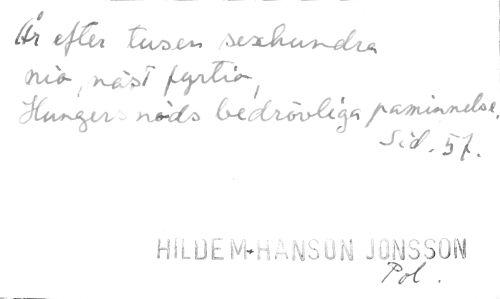 År efter tusen sexhundra
nio, näst fyrtio,
Hungers nöds bedrövliga påminnelse.
Sid. 57.
HILDEM-HANSON JONSSON
Pol.